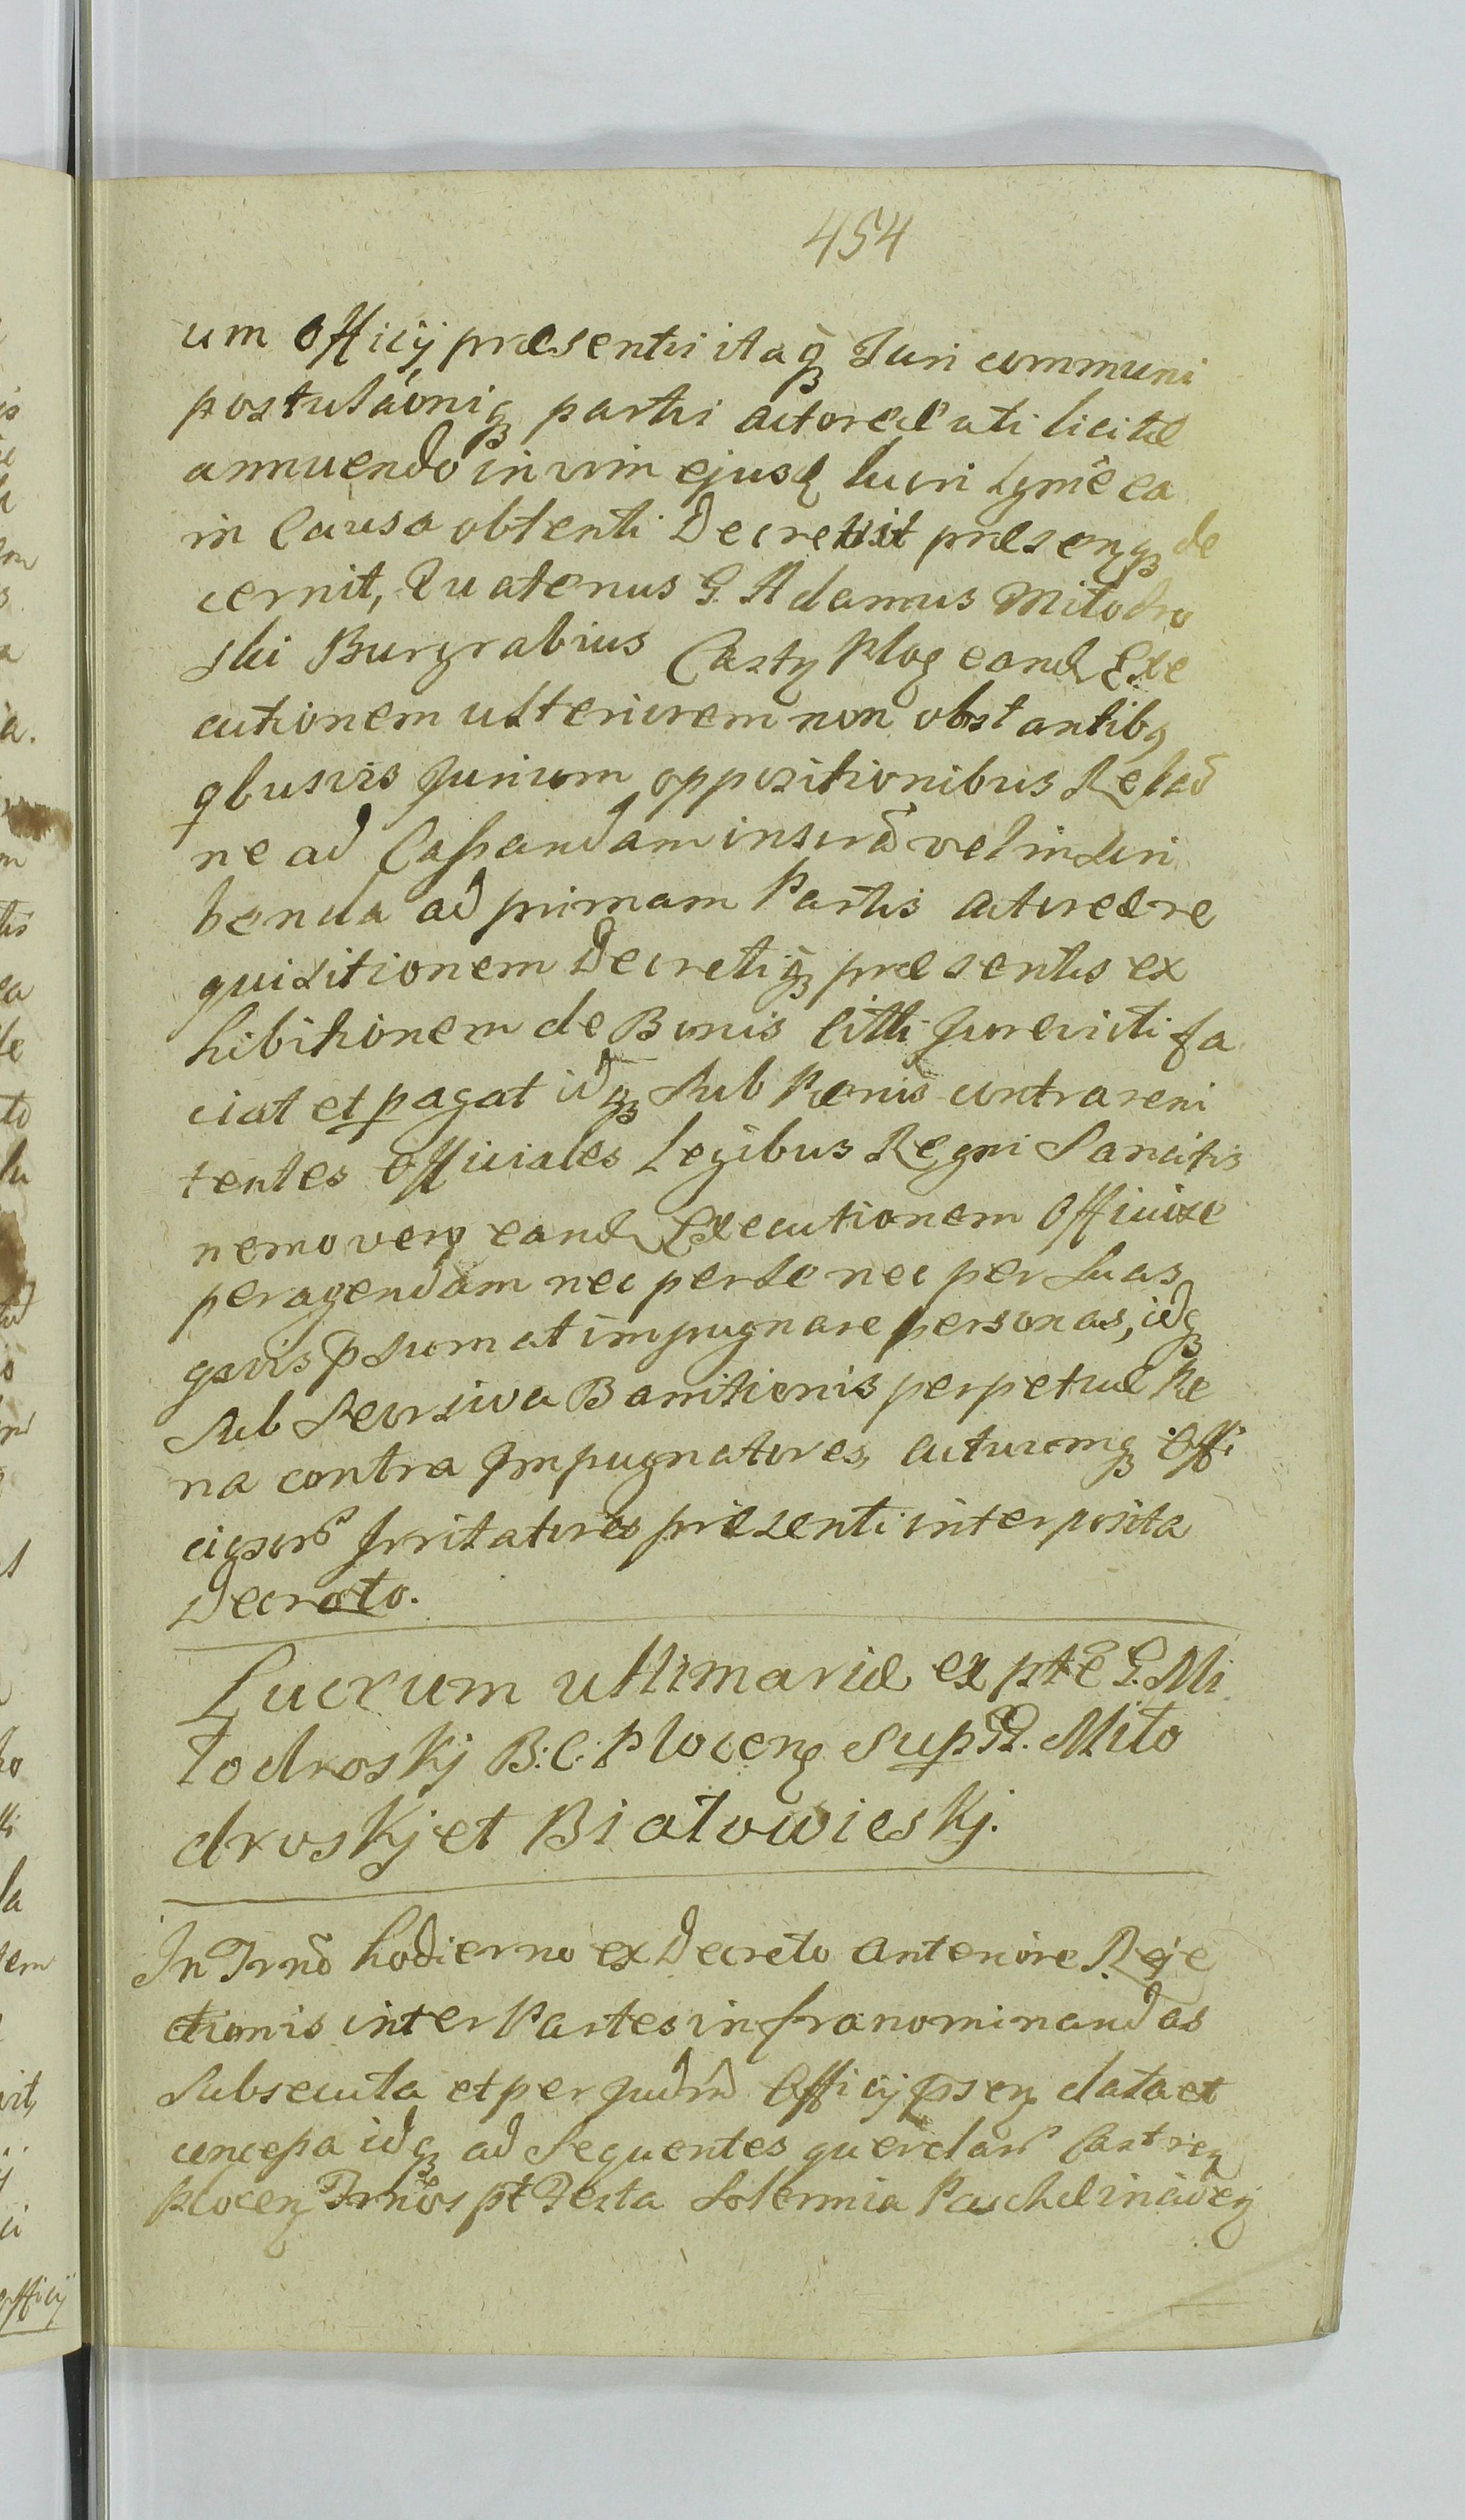 454
um Officij præsentis itaq₃ Juri communi
postulãoniq₃ partis actoreæ uti licitæ
annuendo in vim ejusd lucri
in Causa obtenti Decrevit præsenq₃ de
cernit, Quatenus G. Adamus Miłodro
ski Burgrabius Castr Ploc eand Exe
cutionem ulteriorem non obstantibq
qbusvis Jurium oppositionibus
ne ad Cassandam vel inscri
benda ad primam Partis actoreæ re
quisitionem Decretiq₃ præsentis ex
hibitionem de Bonis Jurevicti fa
ciat et pagat idq₃ Sub Pœnis contra reni
tentes Officiales Legibus Regni Sancitis
nemo vero eand Executionem Officiose
peragendam nec per se nec per Suas
qsvis psumat impugnare personas, idq₃
Sub Seorsiva Bannitionis perpetuæ Pæ
na contra Impugnatores, actuumq₃ Offi
ciosor Irritatores præsenti interposita
Decreto.
Lucrum ultimariæ ex pte G. Mi
łodroskj B: C: Plocen Sup GG. Miło
droskj et Białowieskj.
In Trno hodierno ex Decreto anteriore Reje
ctionis inter Partes infranominandas
Subsecuta et per Judm Officij psen data et
concepa idq₃ ad Sequentes querelar Castren
Plocen Trnos pt Festa Solennia Paschæ